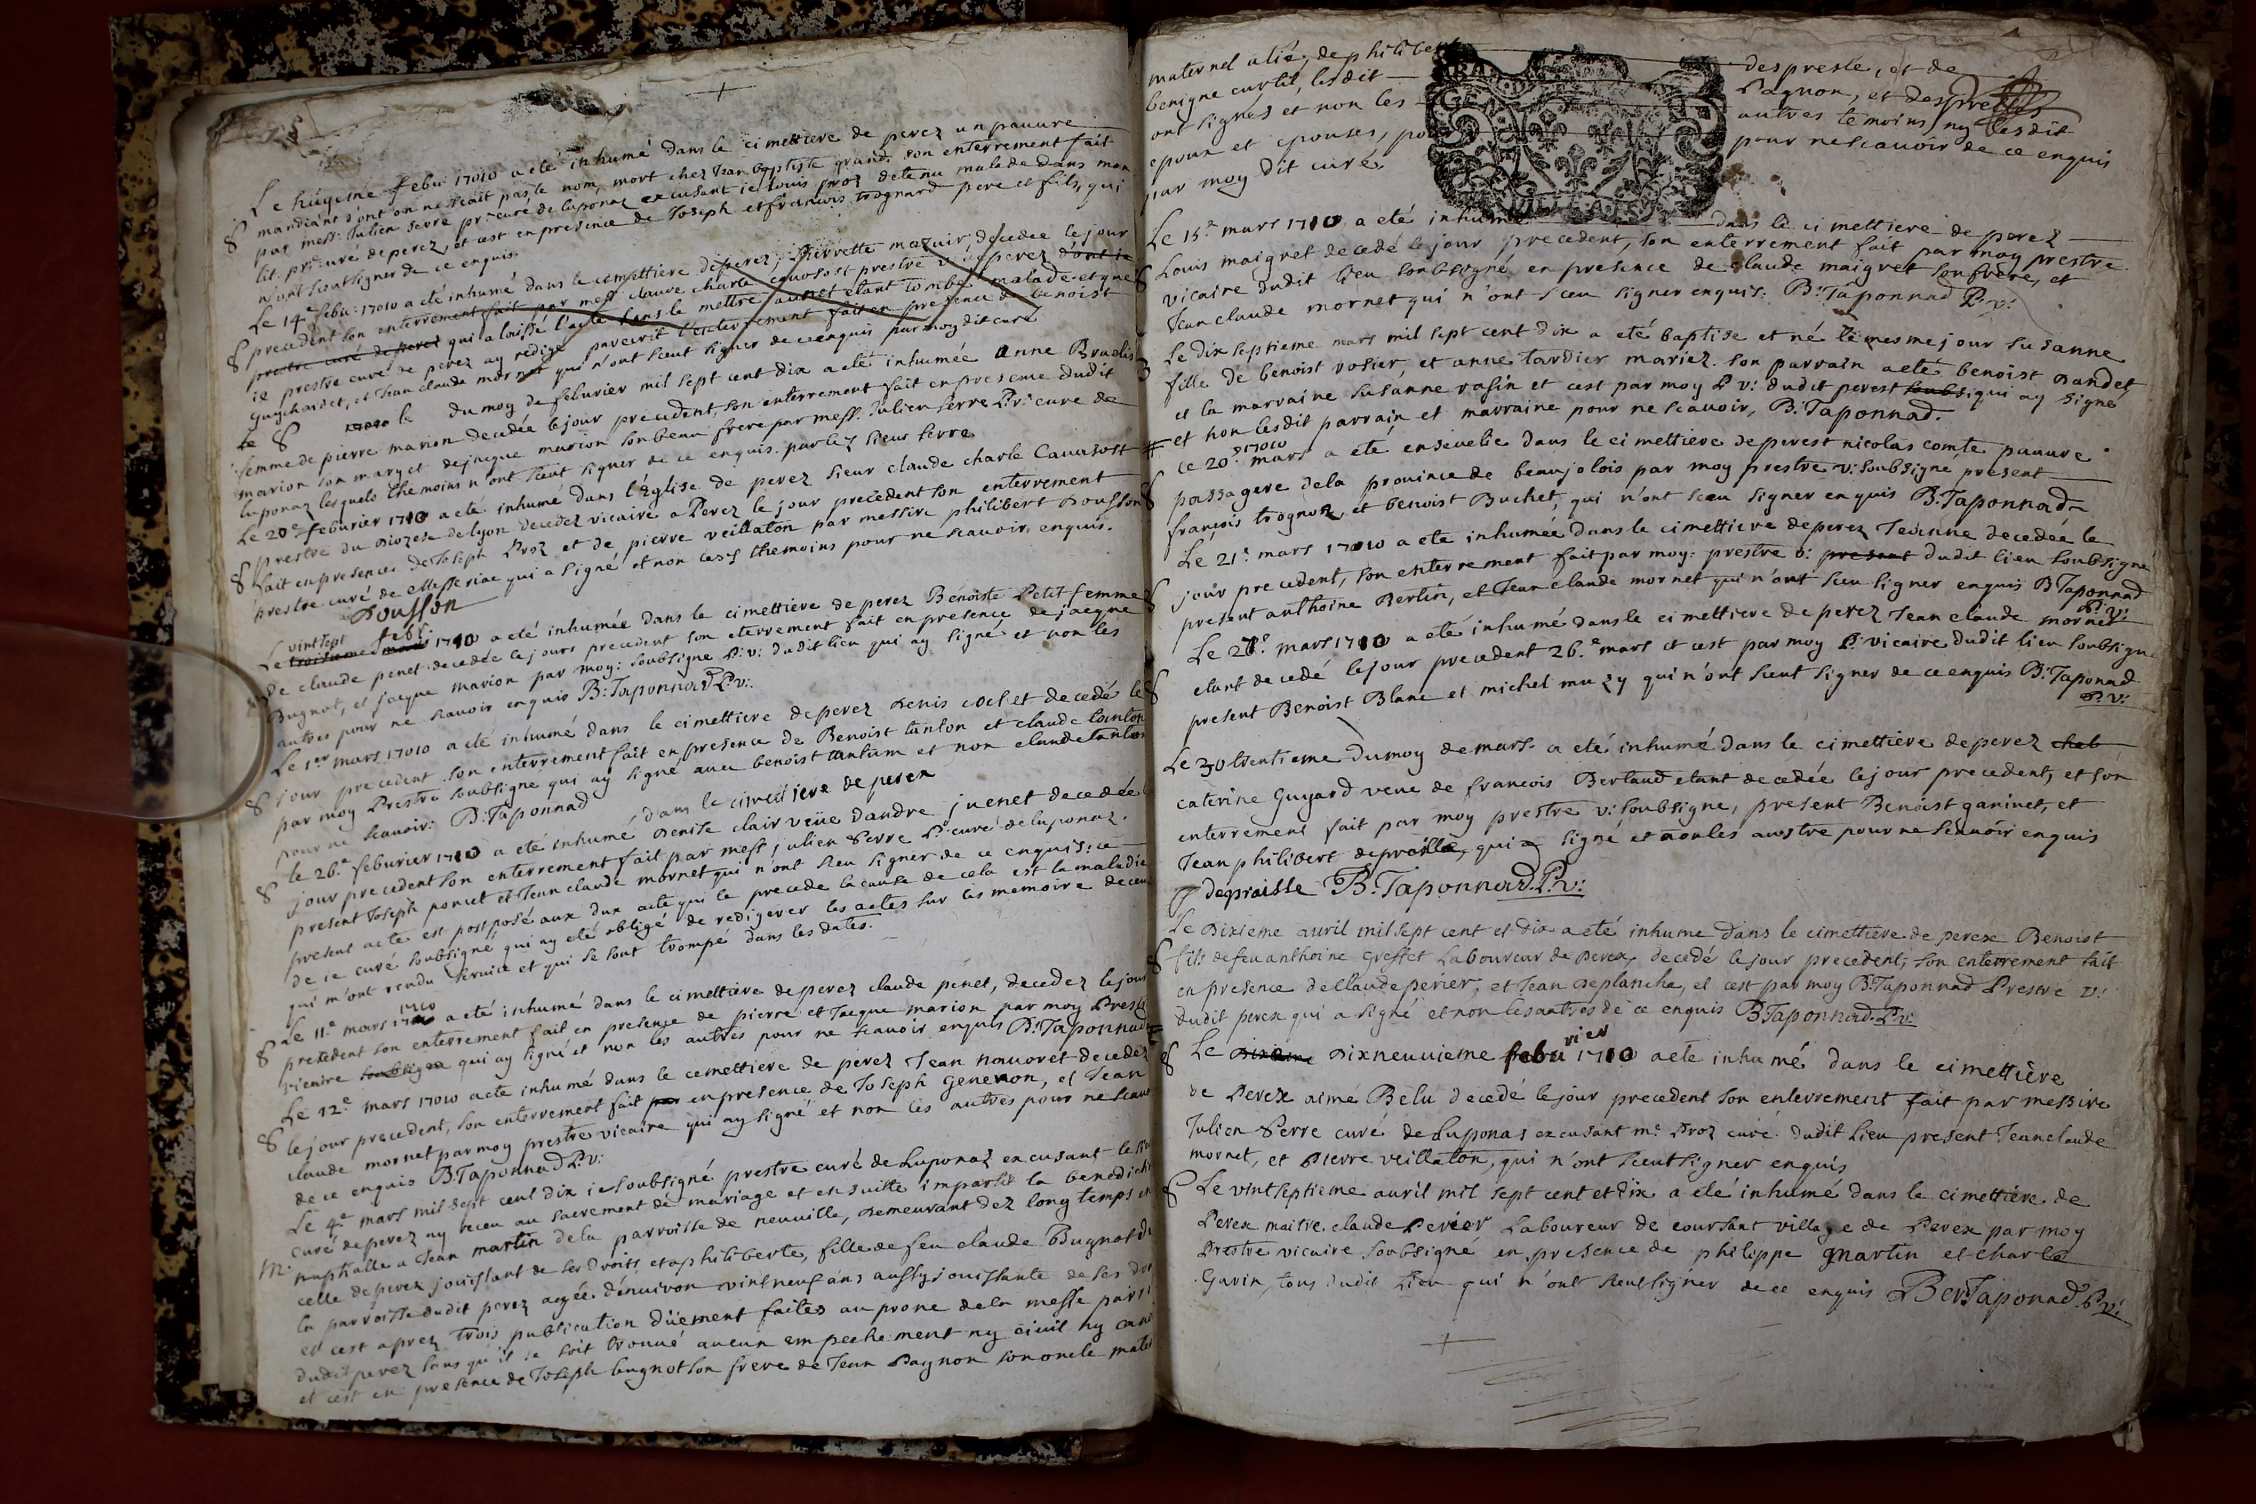 Le huiqeme febu: 1710 a eté inhumé dans le cimettiere de perez un pauure
mandiant d'ont on ne scait pas le nom, mort chez Jean baptiste grand, son enterrement fait
par mess: Julien serre ptre curé de luponaz excusant ie louis proz detenu malade dans mon
lit. ptre curé de perez, et cest en presence de Joseph et francois trognard pere et fils, qui
n'ont sceut signer de ce enquis
Le 14e febu: 1710 a eté inhumé dans le cimettiere de perez, pierrette mazuir, decedee le jour
precedent son enterrement fait par mess claude charle cauarost prestre v: de perez d'ont ie
prestre curé de perez qui a laissé l'acte sans le mettre au net etant tombé malade et que
ie prestre curé de perez ay redigé l'enterrement fait en presence de benoist
guychardet, et Jean claude mornet qui n'ont sceut signer de ce enquis par moy dit curé
Le 1710 le du moy de feburier mil sept cent dix a eté inhumée Anne Brudis
femme de pierre marion decedée le jour precedent, son enterrement fait en presence dudit
marion son mary et de jacque marion son beau frere par mess. Julien serre P. v: curé de
luponaz lesquels themoins n'ont sceut signer de ce enquis. par lez sieur serre
Le 20e feburier 1710 a eté inhumé dans l'Eglise de perez sieur claude charle Cauarost
prestre du diozese de lyon decedez vicaire a Perez le jour precedent son enterrement
fait en presence de Joseph Proz et de pierre veillaton par messire philibert Dousson
prestre curé de qui a signé et non lesds themoins pour ne scauoir enquis.
Dousson
Le vint sept feb: troisieme mars 1710 a eté inhumée dans le cimettiere de perez Benoiste Petit femme
de claude penet decedée le jours precedent son eterrement fait en presence de jacque
Bugnot, et jacque marion par moy: soubsigne P. v: dudit lieu qui ay signé et non les
autres pour ne scauoir enquis B: Taponnard P. v:
Le 1er mars 1710 a eté inhumé dans le cimettiere de perez denis cochet decedé le
jour precedent son enterrement fait en presence de Benoist tanton et claude tanton
par moy Prestre soubsigné qui ay signé auec benoist tantum et non claude tanton
pour ne scauoir: B: Taponnad
le 26e feburier 1710 a eté inhumé dans le cimettiere de perex Denise clair veüe dandre juenet decedée le
jour precedent son enterrement fait par mess julien Serre P. curé de luponaz.
present Joseph poncet et Jean claude mornet qui n'ont sceu signer de ce enquis: ce
present acte est postposé aux dux acte qui le precede la cause de cela est la maladie
de ce curé soubsigné qui ay eté obligé de redigerer les actes sur les memoire de ceux
qui m'ont rendu seruice et qui se sont trompé dans les dates.
Le 11e mars 1710 a eté inhumé dans le cimettiere de perez claude penet, decedez le jour
precedent son enterrement fait en presence de pierre et Jacque marion par moy Prestre
vicaire soubsigne qui ay signé et non les autres pour ne scauoir enquis B: Taponnad
Le 12e mars 1710 a ete inhumé dans le cemettiere de perez Jean nauoret decedez
le jour precedent, son enterrement fait par en presence de Joseph Genevon, et Jean
claude mornet par moy prestre vicaire qui ay signé et non les autres pour ne scauoir
de ce enquis B: Taponnad P. v:
Le 4e mars mil sept cent dix ie soubsigné prestre curé de luponaz excusant le sr
curé de perez ay receu au sacrement de mariage et en suitte imparti la benedictio
nuptialle a Jean martin dela parroisse de neuuille, demeurant dez long temps en
celle de perex jouissant de ses droits et a philiberte, fille de feu claude Bugnot de
la parroisse dudit perez agée d'enuiron vint neuf ans aussy jouissante de ses dr
et cest aprez trois publication düement faites au prone dela messe parr
dudit perez sans qu'il se soit trouué aucun empechement ny ciuil ny can
et cest en presence de Joseph bugnot son frere de Jean Pagnon son oncle mater
maternel alié, de philibert despresle, et de
benigne curtil, lesdit Pagnon, et despresle
ont signes et non les autres temoins ny lesdit
epoux et epouses, pour ne scauoir de ce enquis
par moy dit curé
Le 15e mars 1710 a eté inhumé dans le cimettiere de perez
Louis maigret decedé le jour precedent, son enterrement fait par moy prestre
vicaire dudit lieu soubsigné en presence de claude maigret son frere, et
Jean claude mornet qui n'ont sceu signer enquis: B: Taponnad P. v:
Le dix septieme mars mil sept cent dix a eté baptise et né le mesme jour susanne
fille de benoist rosier, et anne tardier mariez. son parrain a eté benoist dandet
et la marraine susanne rasin et cest par moy P v: dudit perest soubsi qui ay signé
et non lesdit parrain et marraine pour ne scauoir, B: Taponnad.
Le 20e mars 1710 a eté enseuelie dans le cimettiere de perest nicolas comte pauure
passagere dela prouince de beaujolois par moy prestre v: soubsigné present
françois trognoz, et benoist Buchet, qui n'ont sceu signer enquis B: Taponnad
Le 21e mars 1710 a ete inhumée dans le cimettiere de perez Jeanne decedée le
jour precedent, son enterrement fait par moy: prestre v: present dudit lieu soubsigné
present anthoine Bertin, et Jean claude mornet qui n'ont sceu signer enquis B Taponnad P. v:
Le 27e mars 1710 a eté inhumé dans le cimettiere de perez Jean claude mornet
etant decedé le jour precedent 26e mars et cest par moy P. vicaire dudit lieu soubsigne
present Benoist Blanc et michel muzy qui n'ont sceut signer de ce enquis B: Taponnad
P. v:
Le 30 trentieme du moy de mars a eté inhumé dans le cimettiere de perez
caterine Guyard veue de francois Bertaud etant decedée le jour precedent, et son
enterrement fait par moy prestre v: soubsigne, present Benoist ganinet, et
Jean philibert depraille, qui a signé et non les austre pour ne scauoir enquis
depraisle B: Taponnad. P. v:
Le Dixieme auril mil sept cent et dix a eté inhume dans le cimettiere de perex Benoist
fils de feu anthoine Greffet Laboureur de Perex, decedé le jour precedent, son enterrement fait
en presence de Claude perier, et Jean Deplanche, et cest par moy B: Taponnad Prestre v:
dudit perex qui a signé et non les autres de ce enquis B. Taponnad. P. v:
Le dixieme Dixneuuieme febuvier 1710 a ete inhumé dans le cimettiere
de Perex aimé Belu decedé le jour precedent son enterrement fait par messire
Julien Serre curé de Luponas excusant mr Proz curé dudit Lieu present Jean claude
mornet, et Pierre veillaton, qui n'ont sceut signer enquis
Le vint septieme auril mil sept cent et dix a eté inhumé dans le cimettiere de
Perex maitre claude Perier Laboureur de coursant village de Perex par moy
Prestre vicaire soubsigné en presence de philippe martin et charle
Gavin, tous dudit Lieu qui n'ont sceut signer de ce enquis Ber: Taponad. P. v: